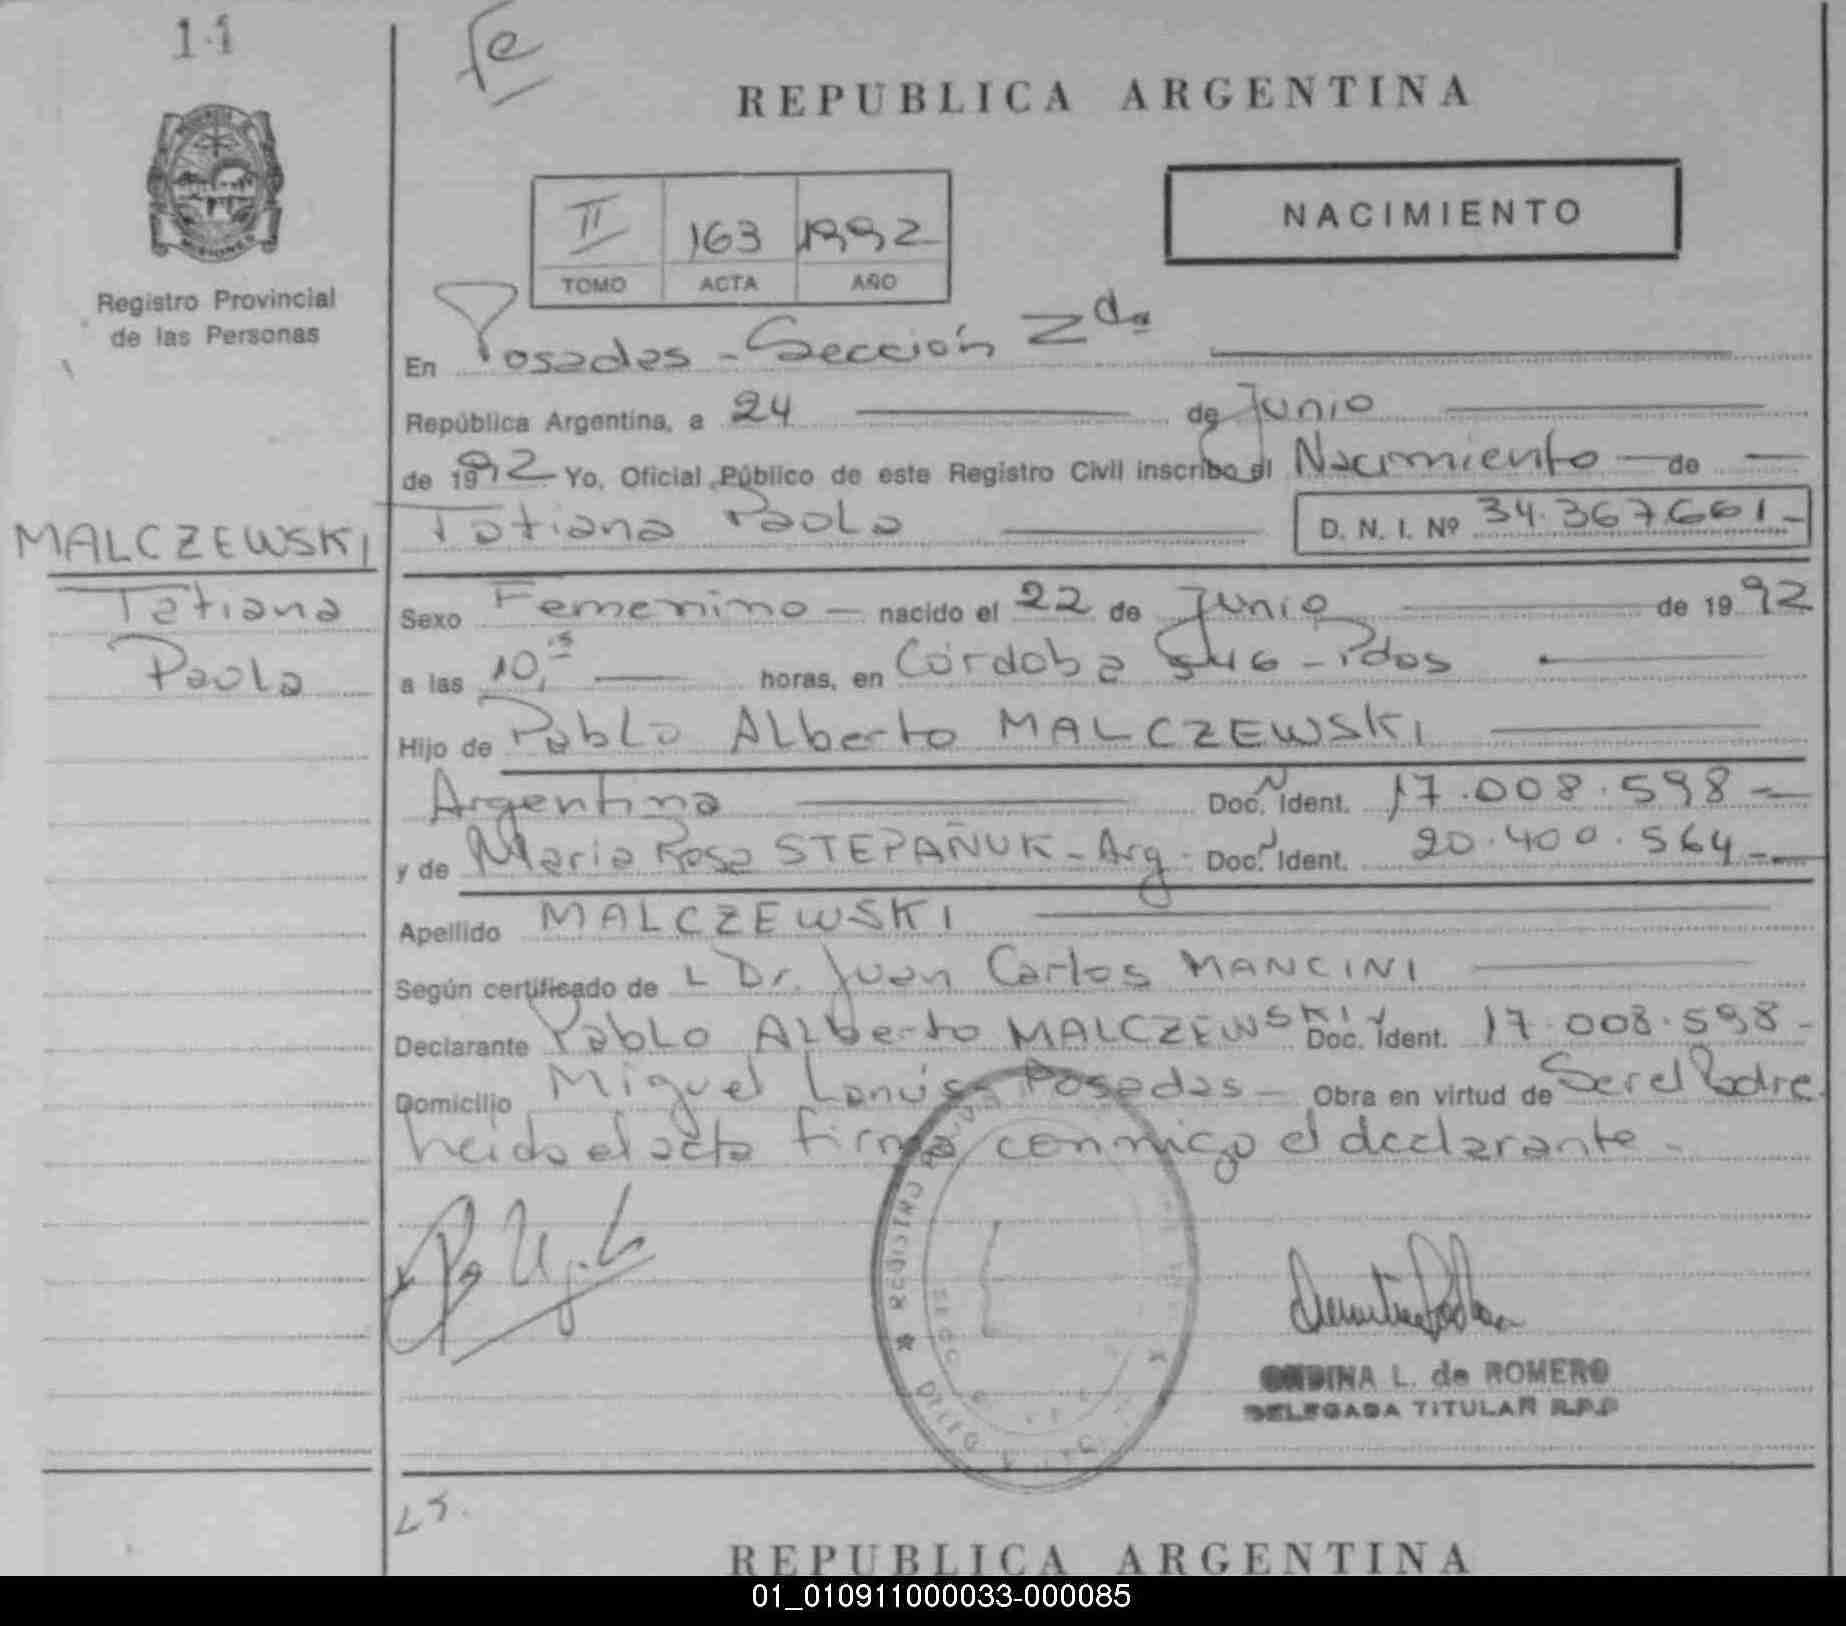 11
fe
REPUBLICA ARGENTINA
NACIMIENTO
II 163 1992
TOMO ACTA AÑO
Registro Provincial
de las Personas
En Posadas - Sección 2da
República Argentina, a 24 de Junio
de 1992 Yo, Oficial Público de este Registro Civil inscribo el Nacimiento de
Tatiana Paola D. N. I. Nº 34.367.661-
MALCZEWSKI
Tatiana
Paola
Sexo Femenino - nacido el 22 de Junio de 1992
a las 10,15 horas, en Córdoba 546 - Pdas
Hijo de Pablo Alberto MALCZEWSKI
Argentina Doc. Ident. 17.008.598
y de Maria Rosa STEPAÑUK - Arg. Doc. Ident. 20.400.564
Apellido MALCZEWSKI
Según certificado de L Dr. Juan Carlos MANCINI
Declarante Pablo Alberto MALCZEWSKI Doc. Ident. 17.008.598-
Domicilio Miguel Lanús Posadas - Obra en virtud de Ser el Padre.
Leida el acta firma conmigo el declarante.
REGISTRO
ONDINA L. de ROMERO
DELEGADA TITULAR R.P.P
REPUBLICA ARGENTINA
01_010911000033-000085